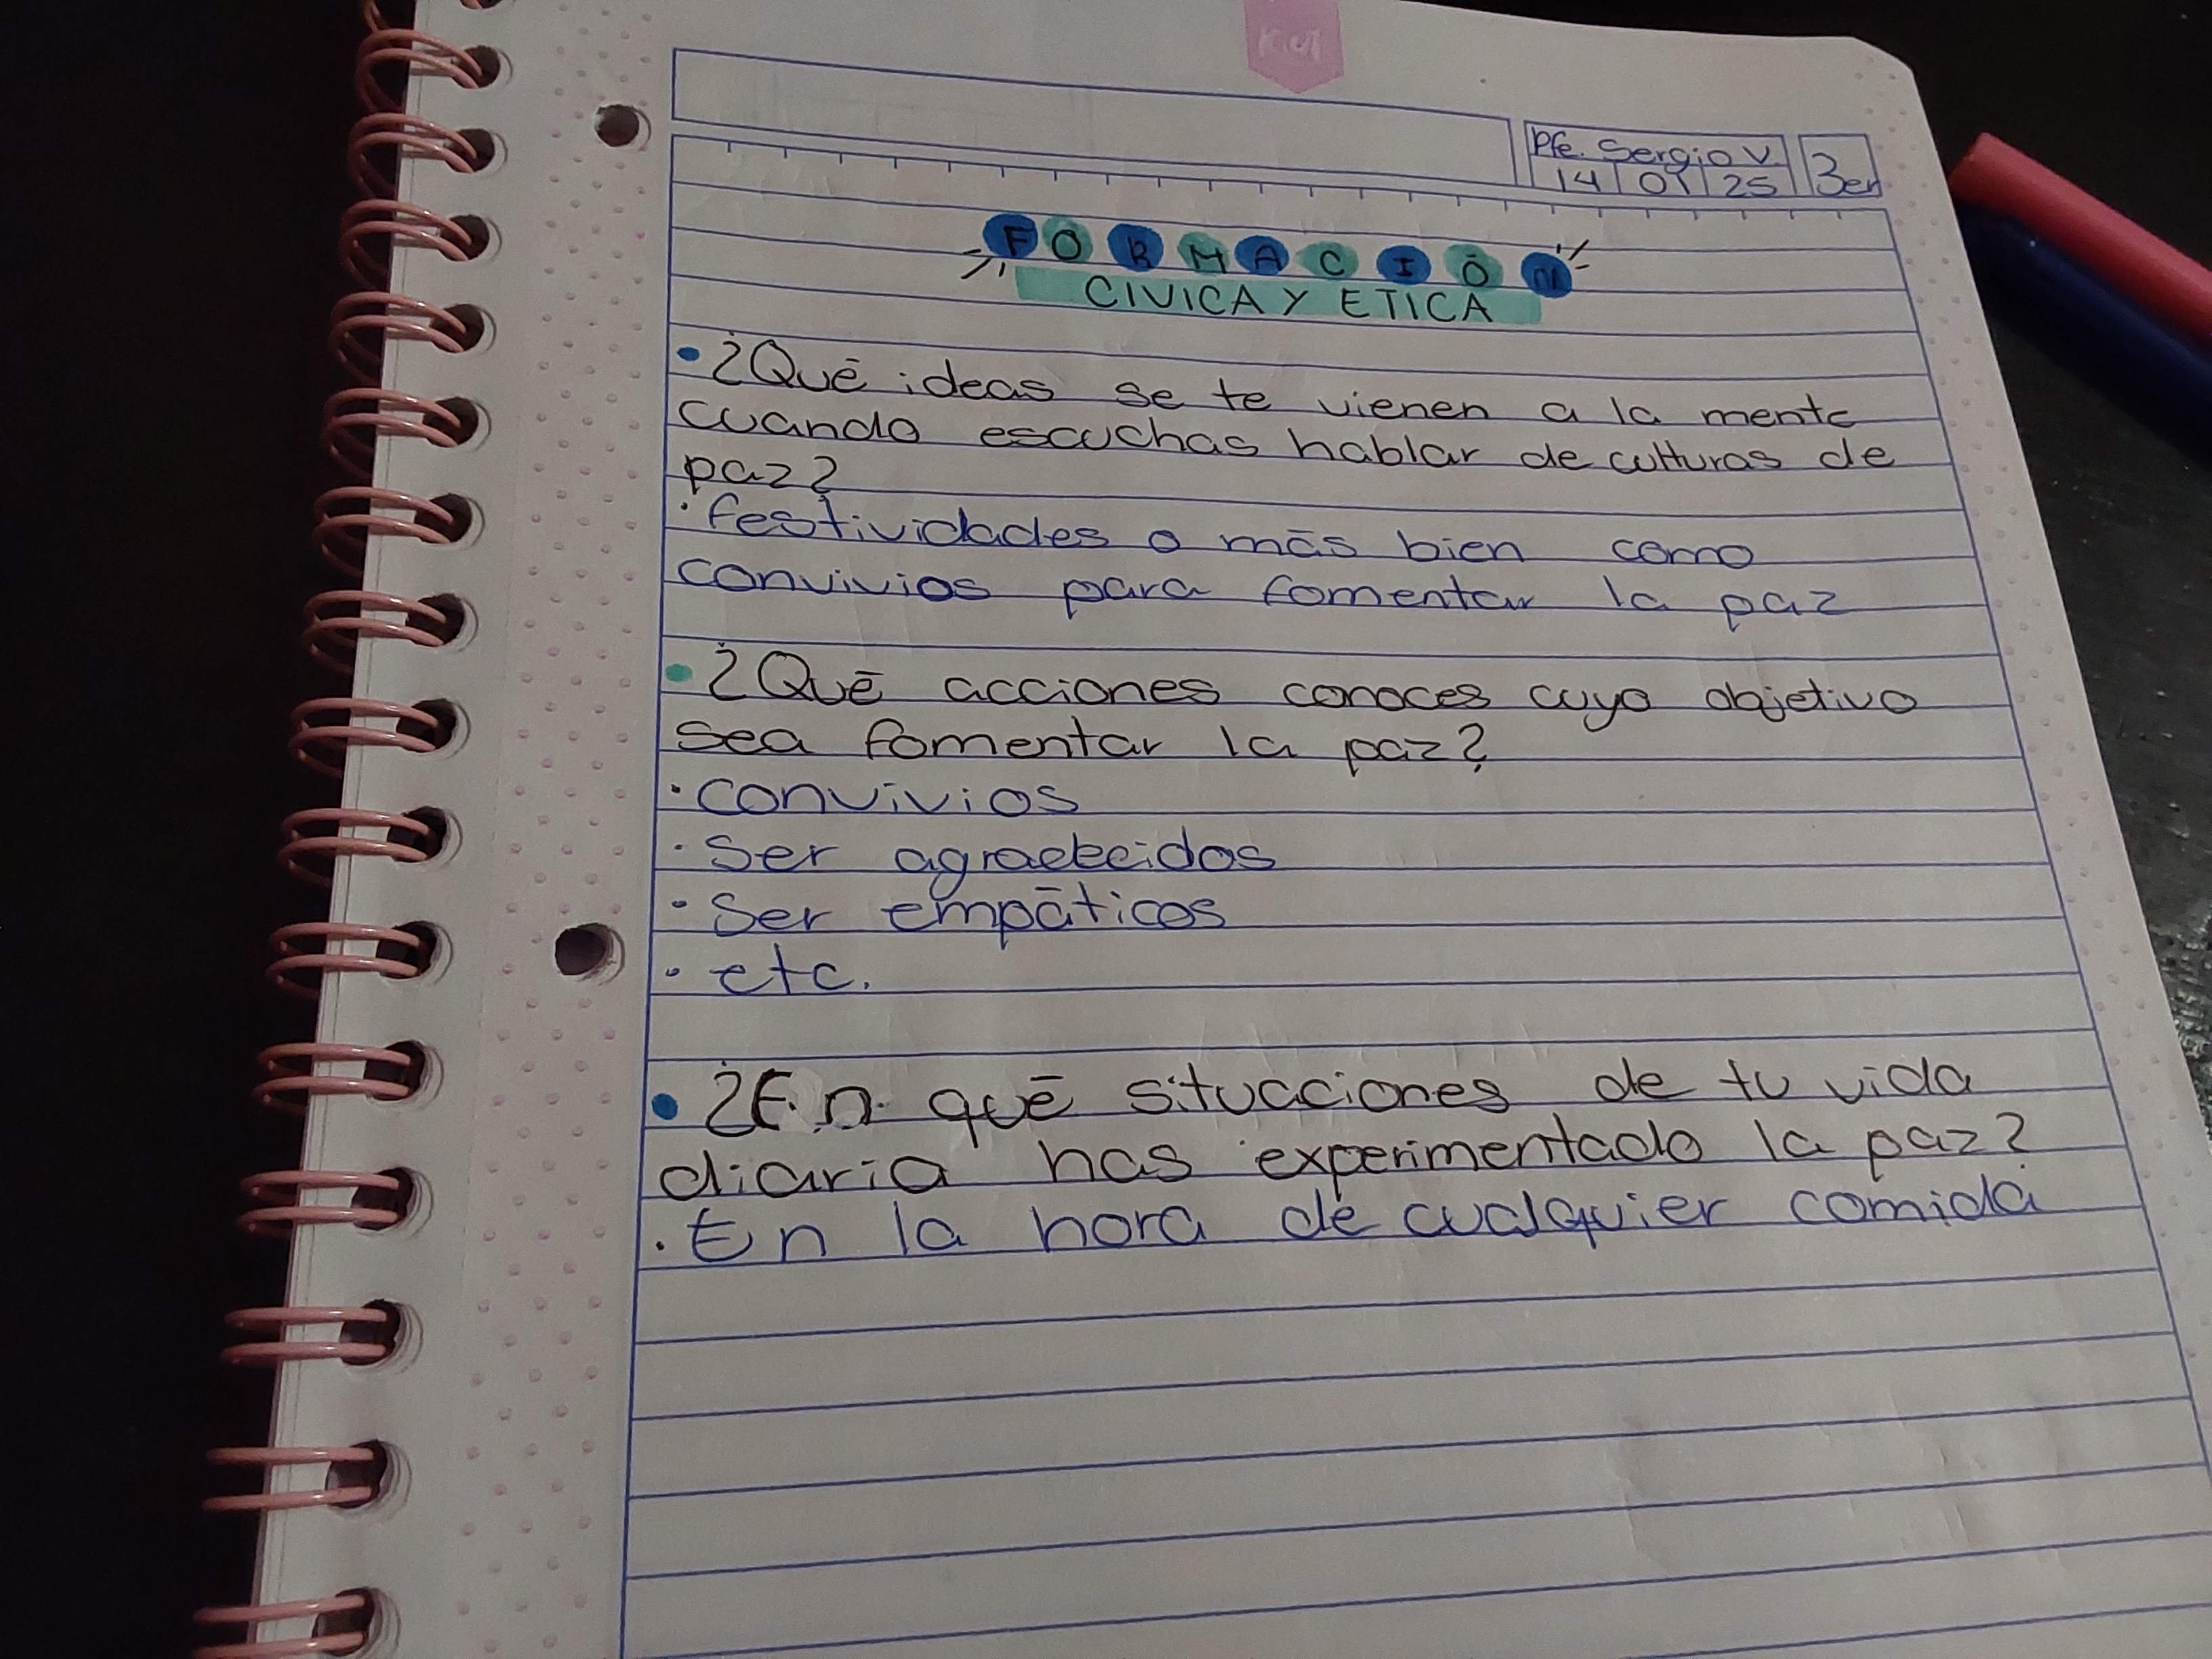 Kiut
Pfe. Sergio V.
14 01 25
3er
FORMACIÓN
CIVICA Y ETICA
• ¿Qué ideas se te vienen a la mente
cuando escuchas hablar de culturas de
paz?
· festividades o más bien como
convivios para fomentar la paz
• ¿Qué acciones conoces cuyo objetivo
sea fomentar la paz?
· convivios
· Ser agradecidos
· Ser empáticos
· etc.
• ¿En qué situaciones de tu vida
diaria has experimentado la paz?
· En la hora de cualquier comida